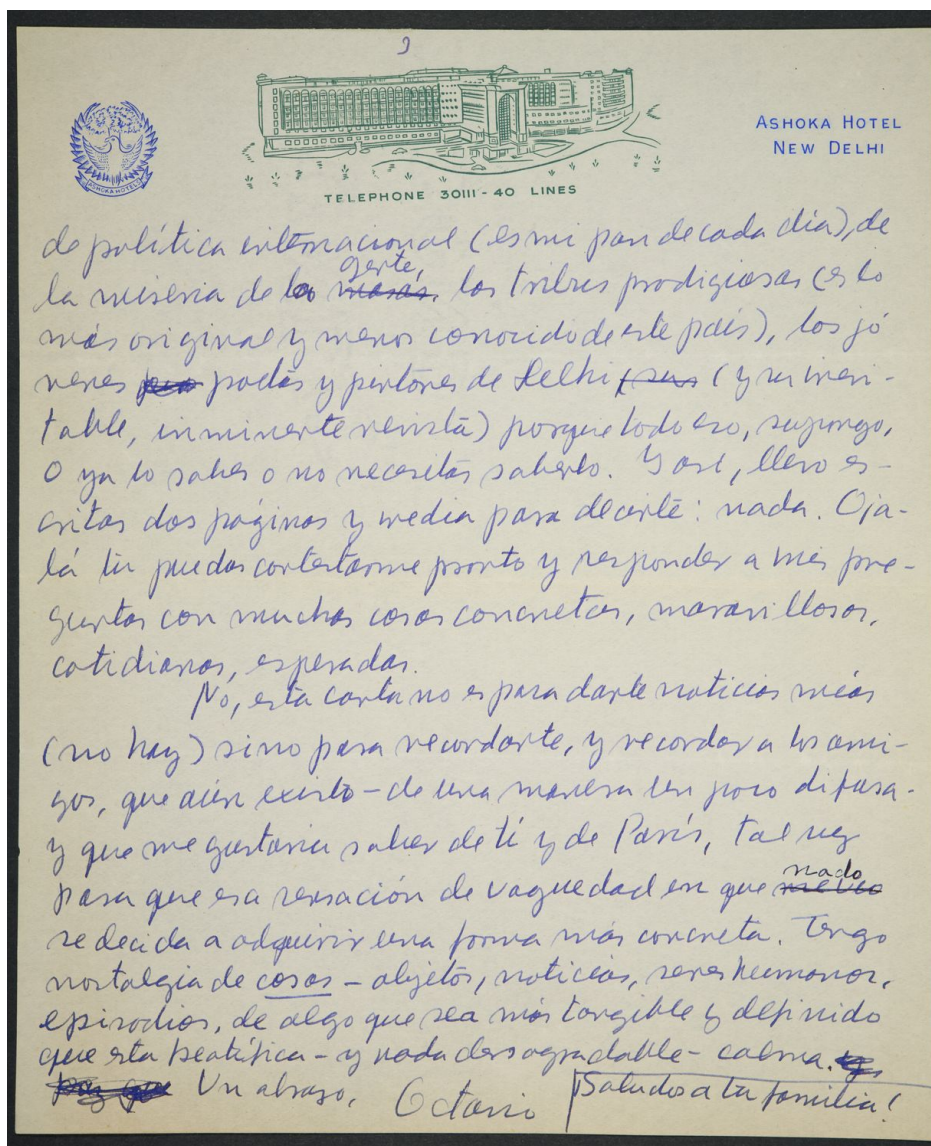 ASHOKA HOTEL
NEW DELHI
ASHOKA HOTEL
TELEPHONE 30111 - 40 LINES
de política internacional (es mi pan de cada día), de
la miseria de la masas gente, las tribus prodigiosas (es lo
más original y menos conocido de este país), los jó
venes poetas y pintores de Delhi (sus (y su inevi-
table, inminente revista) porque todo eso, supongo,
o ya lo sabes o no necesitas saberlo. Y así, llevo es-
critas dos páginas y media para decirte: nada. Oja-
lá tú puedas contestarme pronto y responder a mis pre-
guntas con muchas cosas concretas, maravillosas,
cotidianas, esperadas.
No, esta carta no es para darte noticias mías
(no hay) sino para recordarte, y recordar a los ami-
gos, que aún existo - de una manera un poco difusa -
y que me gustaría saber de tí y de París, tal vez
para que esa sensación de vaguedad en que nado
se decida a adquirir una forma más concreta. Tengo
nostalgia de cosas - objetos, noticias, seres humanos,
episodios, de algo que sea más tangible y definido
que esta beatífica - y nada desagradable - calma. y
Un abrazo, Octavio ¡Saludos a tu familia!